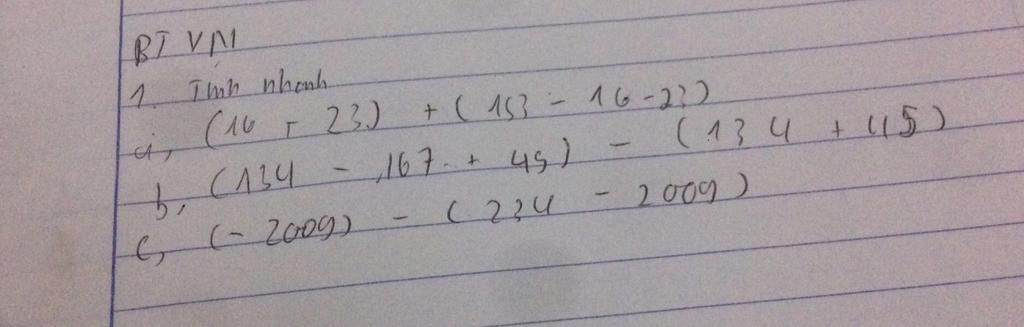 BT VN
1. Tính nhanh
a, (16 + 23) + (153 - 16 - 23)
b, (134 - 167 + 45) - (134 + 45)
c, (- 2009) - (234 - 2009)